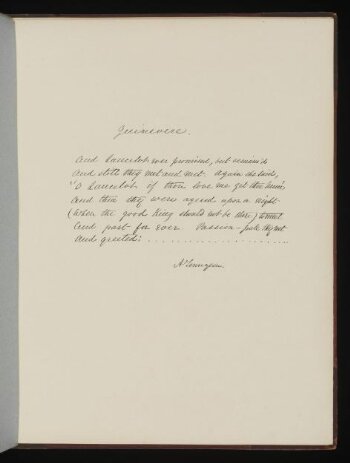 Guinevere.
And Lancelot ever promised, but remain'd
And still they met and met. Again she said,
"O Lancelot if thou love me get thee hence
And then they were agreed upon a night
(When the good King should not be there) to meet
And part for ever. Passion-pale they met
And greeted: . . . . . . . . . . . . . . . . . . . .
A Tennyson